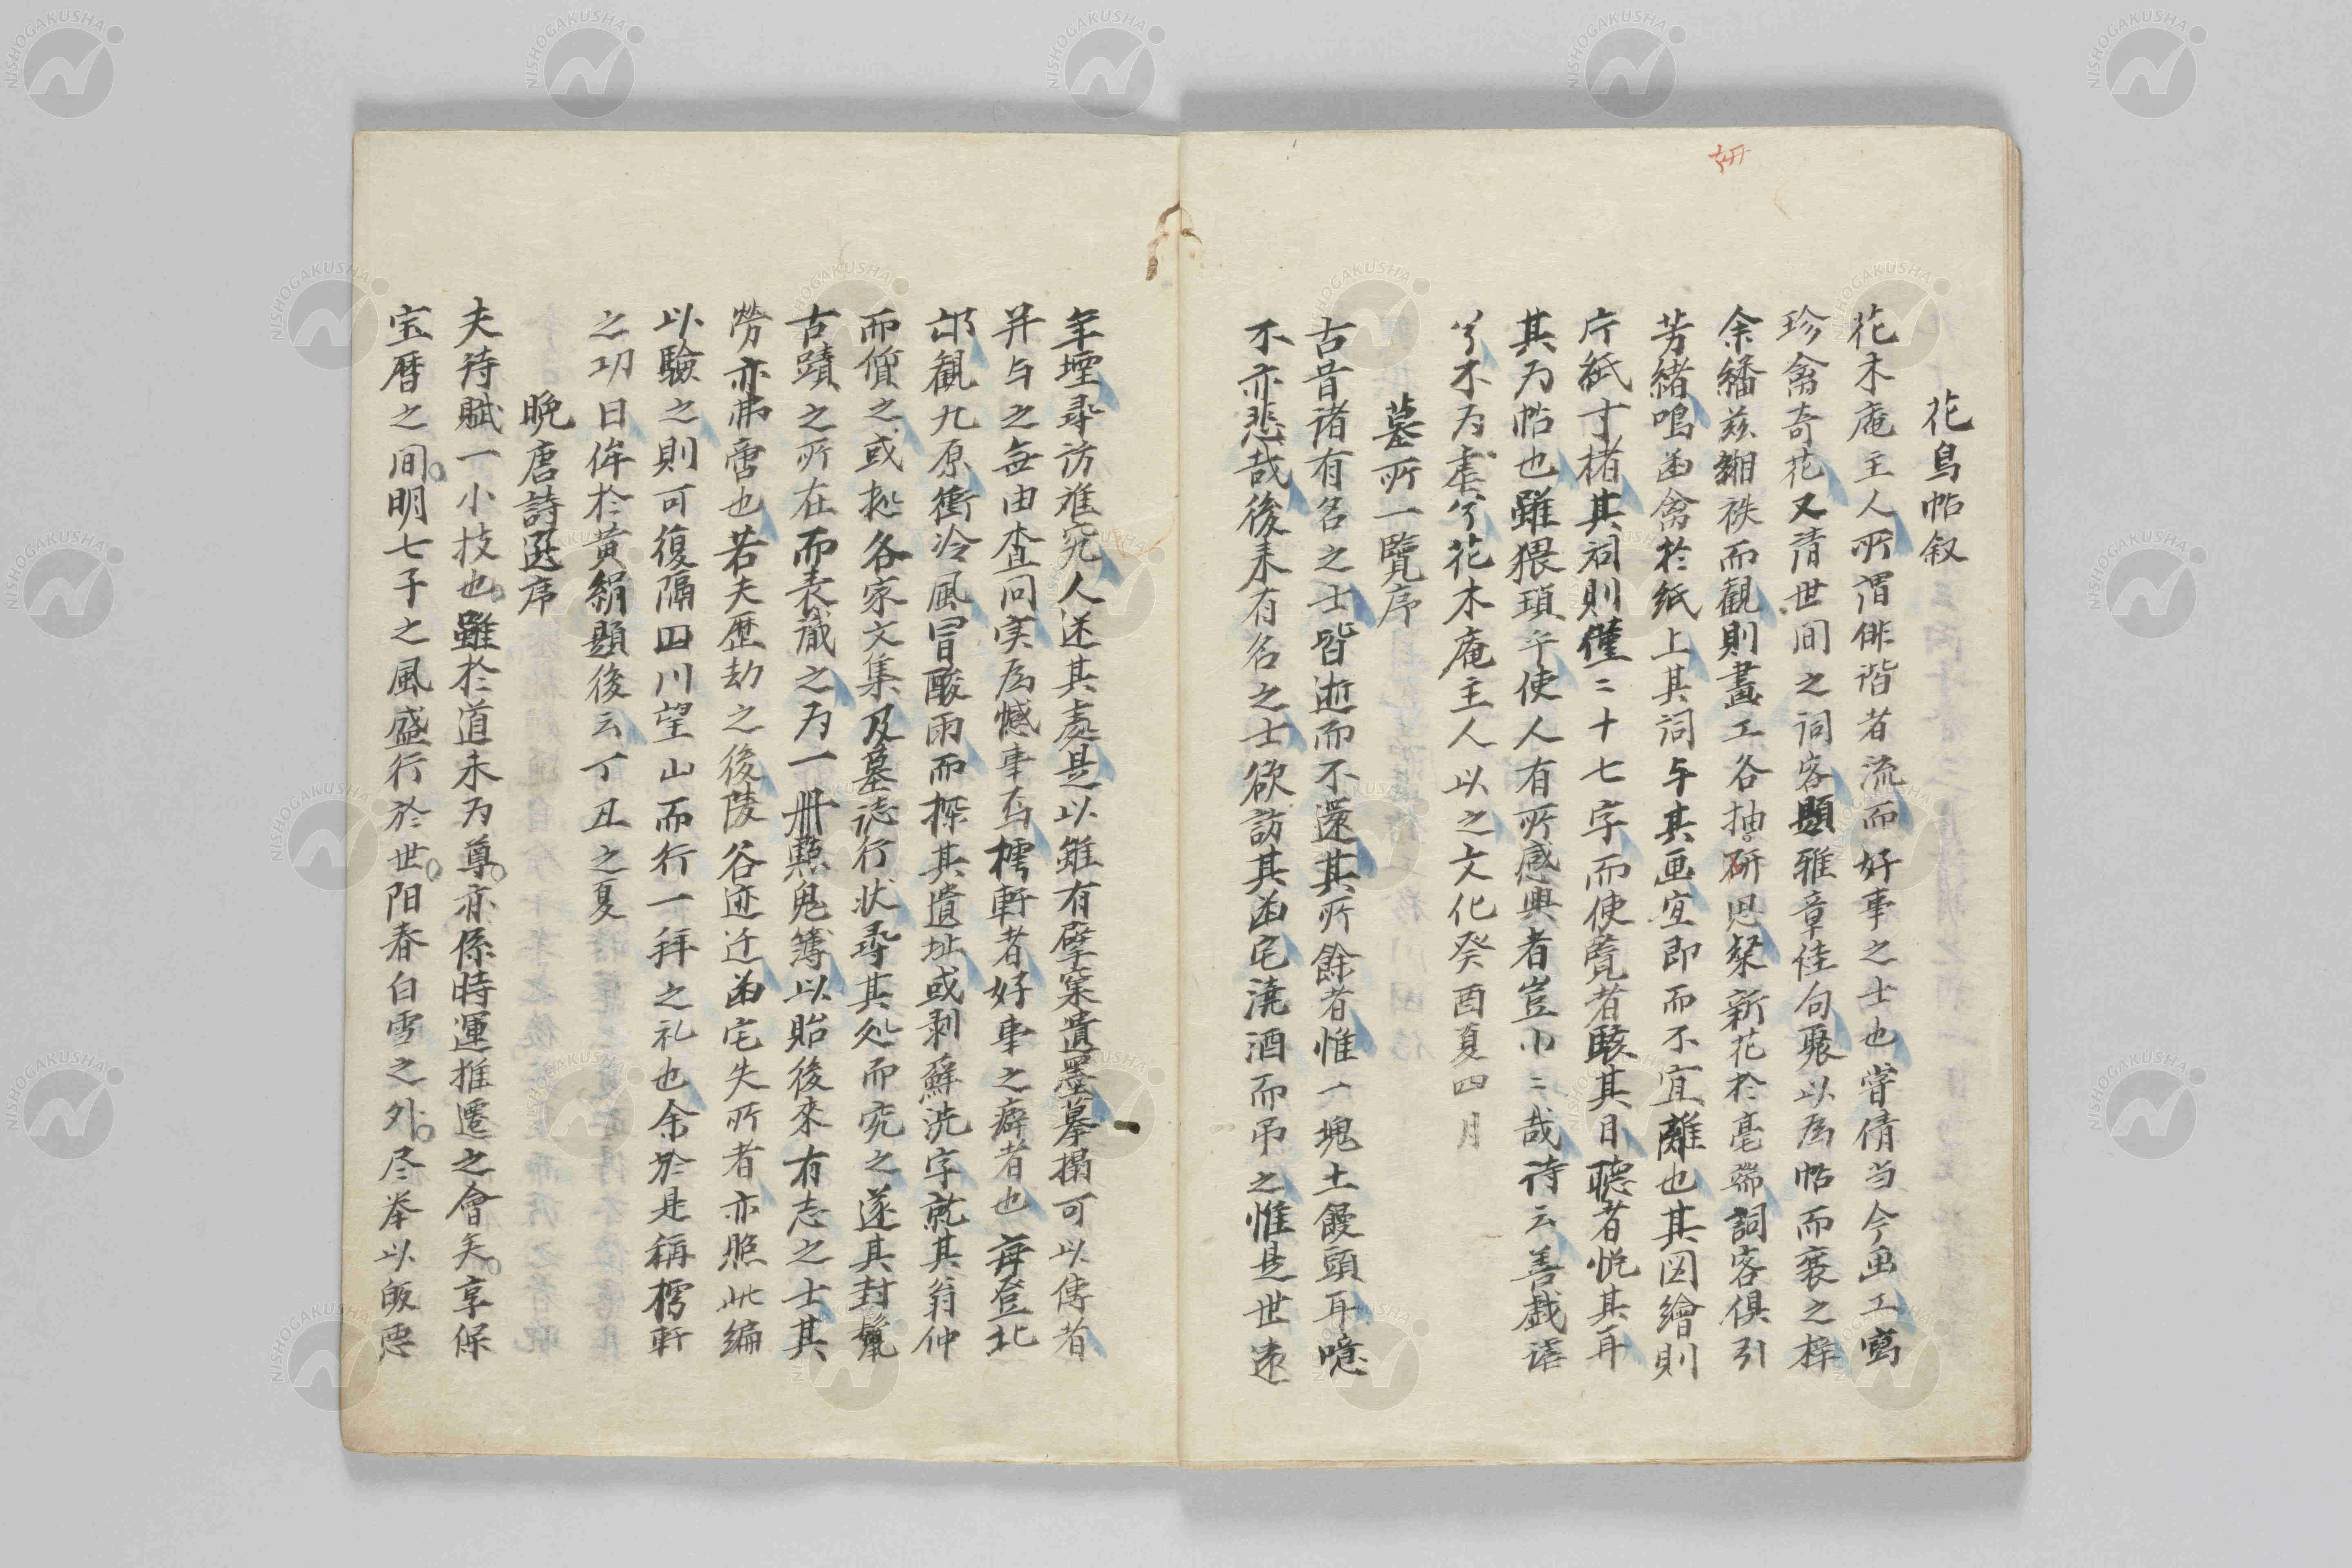 妍
花鳥帖叙
花木庵主人所謂俳諧者流而好事之士也嘗倩当今画工写
珍禽奇花又清世间之词客題雅章佳句聚以為帖而衰之梓
余繙兹緗帙而観則畫工各抽研思粲新花於毫端詞客俱引
芳緒鳴凾禽於紙上其詞与其画宜即而不宜離也其図繪則
片紙寸楮其词則僅二十七字而使覧者駭其目聴者悦其耳
其为帖也雖猥瑣乎使人有所感興者豈小〻哉待云善戯謔
兮不为虐兮花木庵主人以之文化癸酉夏四月
墓所一覽序
古昔诸有名之士皆逝而不還其所餘者惟一塊土饅頭耳噫
不亦悲哉後来有名之士欲訪其凾宅澆酒而吊之惟是世遠
年堙尋访難究人迷其處是以雖有擘窠遺墨摹搨可以傳者
并与之無由査问実為憾事焉樗軒者好事之癖者也毎登北
邙観九原衝冷風冒酸雨而探其遺址或剥蘚洗字就其翁仲
而質之或拠各家文集及墓誌行状尋其処而究之遂其封鬣
古蹟之所在而表識之为一册點鬼簿以貽後來有志之士其
勞亦弗啻也若夫歴劫之後陵谷迹迁凾宅失所者亦照此編
以驗之則可復隔四川望山而行一拜之礼也余於是稱樗軒
之功日侔於黄絹題後云丁丑之夏
晩唐詩選序
夫待賦一小技也雖於道未为尊亦係時運推遷之會矣享保
宝暦之间明七子之風盛行於世阳春白雪之外尽举以皈悪